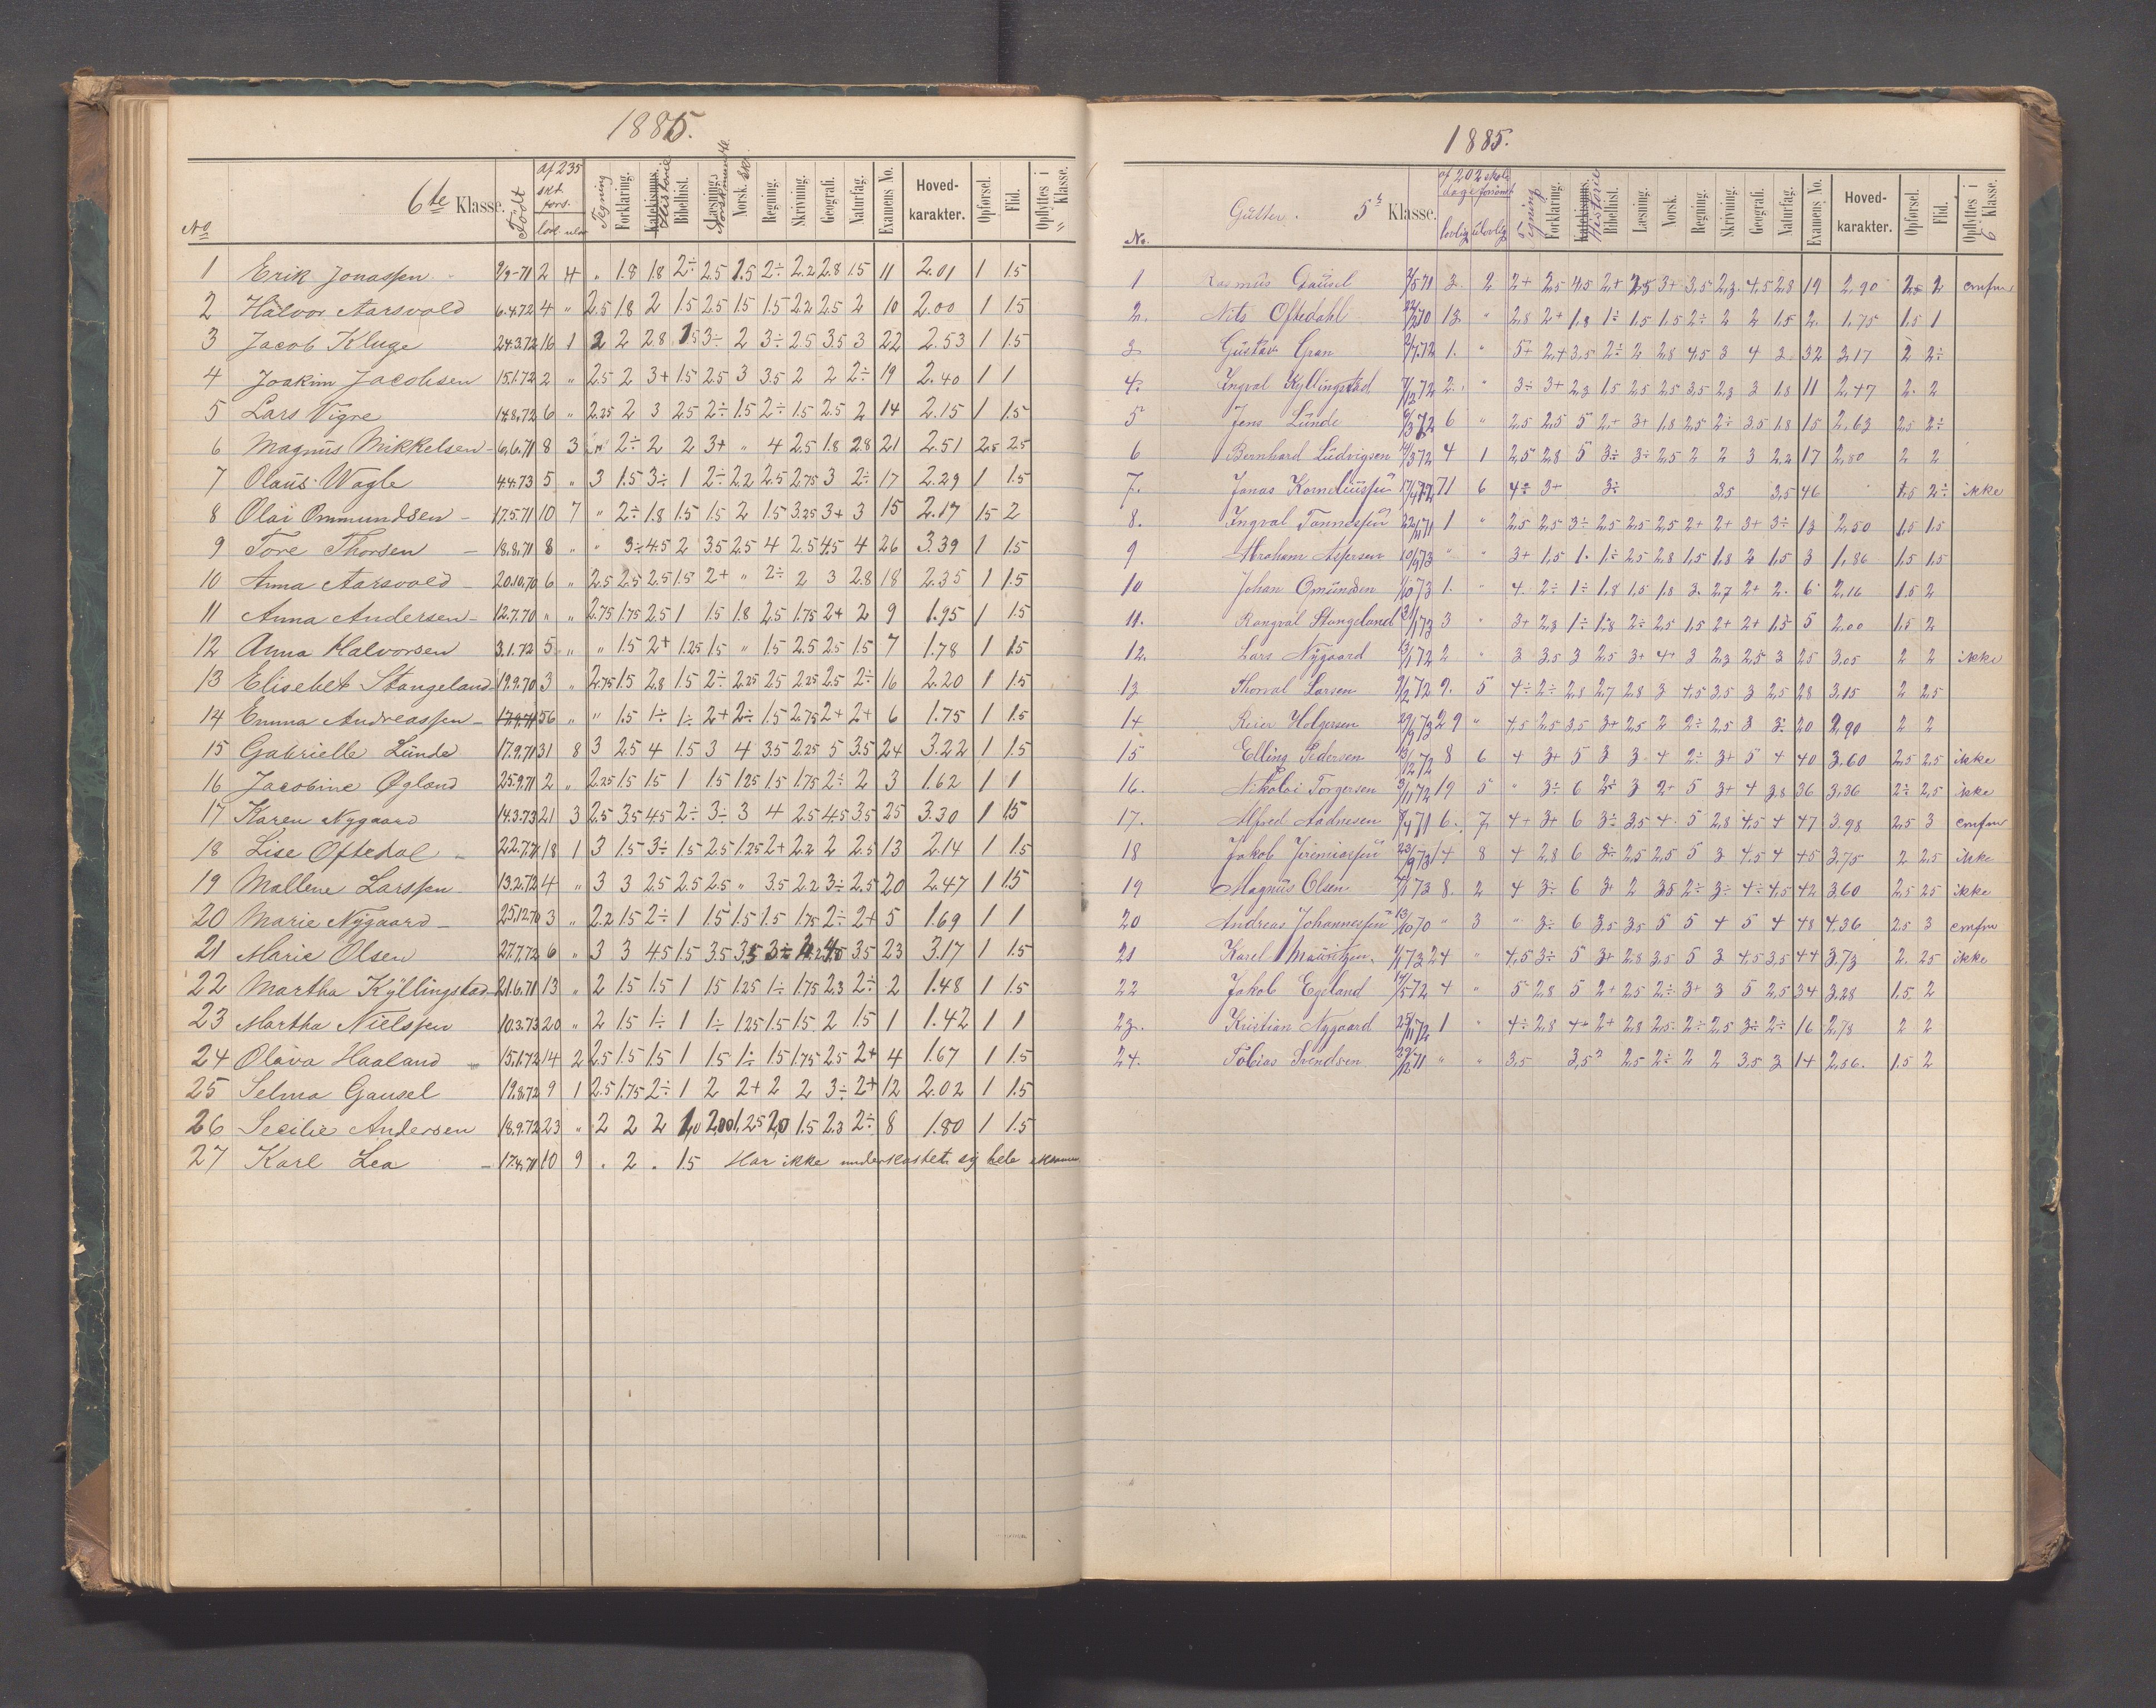 1885.
No 6te Klasse. Födt af 235 skd. fors. lovl ulov Tegning Forklaring. Katekismus. Historie Bibelhist. Læsning. Norsk mundtl. Norsk. skr. Regning. Skrivning. Geografi. Naturfag. Examens No. Hoved-karakter. Opførsel. Flid. Opflyttes i „ Klasse.
1 Erik Jonassen 9/9-71 2 4 „ 1.8 1.8 2÷ 2.5 1.5 2÷ 2.2 2.8 1.5 11 2.01 1 1.5
2 Halvor Aarsvold 6.4.72 4 „ 2.5 1.8 2 1.5 2.5 1.5 1.5 2.2 2.5 2 10 2.00 1 1.5
3 Jacob Kluge 24.3.72 16 1 2 2 2.8 1.5 3÷ 2 3÷ 2.5 3.5 3 22 2.53 1 1.5
4 Joakim Jacobsen 15.1.72 2 „ 2.5 2 3+ 1.5 2.5 3 3.5 2 2 2÷ 19 2.40 1 1
5 Lars Vigre 14.8.72 6 „ 2.25 2 3 2.5 2÷ 1.5 2÷ 1.5 2.5 2 14 2.15 1 1.5
6 Magnus Mikkelsen 6.6.71 8 3 „ 2÷ 2 2 3+ „ 4 2.5 1.8 2.8 21 2.51 2.5 2.5
7 Olaus Wagle 4.4.73 5 „ 3 1.5 3÷ 1 2÷ 2.2 2.5 2.75 3 2÷ 17 2.29 1 1.5
8 Olai Ommundsen 17.5.71 10 7 „ 2÷ 1.8 1.5 1.5 2 1.5 3.25 3+ 3 15 2.17 1.5 2
9 Tore Thorsen 18.8.71 8 „ „ 3÷ 4.5 2 3.5 2.5 4 2.5 4.5 4 26 3.39 1 1.5
10 Anna Aarsvold 20.10.70 6 „ 2.5 2.5 2.5 1.5 2+ „ 2÷ 2 3 2.8 18 2.35 1 1.5
11 Anna Andersen 12.7.70 „ „ 2.75 1.75 2.5 1 1.5 1.8 2.5 1.75 2+ 2 9 1.95 1 1.5
12 Anna Halvorsen 3.1.72 5 „ „ 1.5 2+ 1.25 1.5 „ 1.5 2.5 2.5 1.5 7 1.78 1 1.5
13 Elisebet Stangeland 19.9.70 3 „ 2.75 1.5 2.8 1.5 2÷ 2.25 2.5 2.25 2.5 2÷ 16 2.20 1 1.5
14 Emma Andreassen 17.9.71 56 „ „ 1.5 1÷ 1÷ 2+ 2÷ 1.5 2.75 2+ 2+ 6 1.75 1 1.5
15 Gabrielle Lunde 17.9.71 31 8 3 2.5 4 1.5 3 4 3.5 2.25 5 3.5 24 3.22 1 1.5
16 Jacobine Øgland 25.9.71 2 „ 2.25 1.5 1.5 1 1.5 1.25 1.5 1.75 2÷ 2 3 1.62 1 1
17 Karen Nygaard 14.3.73 21 3 2.5 3.5 4.5 2÷ 3÷ 3 4 2.5 4.5 3.5 25 3.30 1 1.5
18 Lise Oftedal 22.7.71 18 1 3 1.5 3÷ 1.5 2.5 1.25 2+ 2.2 2 2.5 13 2.14 1 1.5
19 Mallene Larssen 13.2.72 4 „ 3 3 2.5 2.5 2.5 „ 3.5 2.2 3÷ 2.5 20 2.47 1 1.5
20 Marie Nygaard 25.12.70 3 „ 2.2 1.5 2÷ 1 1.5 1.5 1.5 1.75 2÷ 2+ 5 1.69 1 1
21 Marie Olsen 27.7.72 6 „ 3 3 4.5 1.5 3.5 3.5 3÷ 3.5 23 3.17 1 1.5
22 Martha Kyllingstad 21.6.71 13 „ 2 1.5 1.5 1 1.5 1.25 1÷ 1.75 2.3 2÷ 2 1.48 1 1.5
23 Martha Nielssen 10.3.73 20 „ 2 1.5 1÷ 1 1÷ 1.25 1.5 1.5 2 1.5 1 1.42 1 1
24 Olava Haaland 15.1.72 14 2 2.5 1.5 1.5 1 1.5 1÷ 1.5 1.75 2.5 2+ 4 1.67 1 1.5
25 Selma Gausel 19.8.72 9 1 2.5 1.75 2÷ 1 2 2+ 2 2 3÷ 2+ 12 2.02 1 1.5
26 Secilie Andersen 18.9.72 23 „ 2 2 2 1,0 2,00 1,25 2,0 1.5 2.3 2÷ 8 1.80 1 1.5
27 Karl Lea 17.4.71 10 9 . 2 . 1.5 Har ikke underkastet sig hele eksamen
1885.
No. Gutter. 5te Klasse. af 202 skoledage forsömt lovlig ulovlig Tegning Forklaring. Katekismus. Historie Bibelhist. Læsning. Norsk. Regning. Skrivning. Geografi. Naturfag. Examens No. Hoved-karakter. Opførsel. Flid. Opflyttes i 6 Klasse.
1 Rasmus Gausel 2/5 71 3. 2 2+ 2,5 4,5 2+ 2,5 3+ 3,5 2,3 4,5 2,8 19 2,90 2,5 2 cnfm
2. Nils Oftedahl 22/2 70 13 „ 2,8 2+ 1,8 1÷ 1,5 1,5 2÷ 2 2 1,5 2. 1,75 1,5 1
3 Gustav Gran 2/7 72 1. „ 5+ 2,4 3,5 2÷ 2 2,8 4,5 3 4 3 32 3,17 2 2÷
4. Ingval Kyllingstad 7/12 72 2. „ 3÷ 3+ 2,3 1,5 2,5 2,5 3,5 2,3 3 1,8 11 2,47 2. 2
5 Jens Lunde 6/3 72 6 „ 2,5 2,5 5 2+ 3+ 1,8 2,5 2÷ 3,5 1,8 15 2,63 2,5 2÷
6 Bernhard Ludvigsen 14/3 72 4 1 2,5 2,8 5 3÷ 3÷ 2,5 2 2 3 2,2 17 2,80 2 2
7. Jonas Korneliussen 17/4 72 71 6 4÷ 3+ 3÷ 3,5 3,5 46 1,5 2÷ ikke
8. Ingval Tønnessen 22/11 71 1 „ 2,5 2,5 3÷ 2,5 2,5 2,5 2+ 2+ 3+ 3÷ 13 2,50 1,5 1,5
9 Abraham Aspersen 10/9 73 „ „ 3+ 1,5 1. 1÷ 2,5 2,8 1,5 1,8 2 1,5 3 1,86 1,5 1,5
10 Johan Omundsen 1/10 73 1. „ 4 2÷ 1÷ 1,8 1,5 1,8 3. 2,7 2+ 2. 6 2,16 1,5 2
11. Rangval Stangeland 31/1 73 3 „ 3+ 2,3 1÷ 1,8 2÷ 2,5 1,5 2+ 2+ 1,5 5 2,00 1,5 2
12. Lars Nygaard 13/1 72 2 „ 3 3,5 3 2,5 3+ 4+ 3 2,3 2,5 3 25 3,05 2 2 ikke
13 Thorval Larsen 9/2 72 9. 5 4÷ 2÷ 2,8 2,7 2,8 3 4,5 3,5 3 2,5 28 3,15 2 2,5
14 Reier Holgersen 29/9 73 29 „ 4,5 2,5 3,5 3+ 2,5 2 2÷ 2,5 3 3÷ 20 2,90 2 2
15 Elling Pedersen 13/12 72 8 6 4 3+ 5 3 3 4 2÷ 3+ 5 4 40 3,60 2,5 2,5 ikke
16. Nikolai Torgersen 3/11 72 19 5 „ 3÷ 6 2÷ 3 2+ 5 3+ 4 3,8 36 3,36 2÷ 2,5 ikke
17. Alfred Aadnesen 8/4 71 6. 7 4+ 3+ 6 3÷ 3,5 4 5 2,8 4,5 4 47 3,98 2,5 3 cnfm
18 Jakob Jeremiassen 23/9 73 14 8 4 2,8 6 3÷ 2,5 2,5 5 3 4,5 4 45 3,75 2 2,5 ikke
19 Magnus Olsen 7/1 73 8. 2 4 3÷ 6 3+ 2 3,5 2÷ 3÷ 4÷ 4,5 42 3,60 2,5 2,5 ikke
20 Andreas Johannessen 13/10 70 „ 3 „ 3÷ 6 3,5 3,5 5 5 4 5 4 48 4,36 2,5 3 cnfm
21 Karel Mauritzen 4/1 73 24 „ 4,5 3÷ 5 3+ 2,8 3,5 5 3 4,5 3,5 44 3,73 2. 2,5 ikke
22 Jakob Egeland 17/5 72 4 „ 5 2,8 5 2+ 2,5 2÷ 3+ 3 5 2,5 34 3,28 1,5 2
23. Kristian Nygaard 25/11 72 1 „ 4÷ 2,8 4+ 2+ 2,8 2,5 2÷ 2,5 3÷ 2÷ 16 2,78 2 2
24. Tobias Svendsen 29/12 71 „ „ 3,5 3,5 2,5 2÷ 2 2 3,5 3 14 2,56. 1,5 2